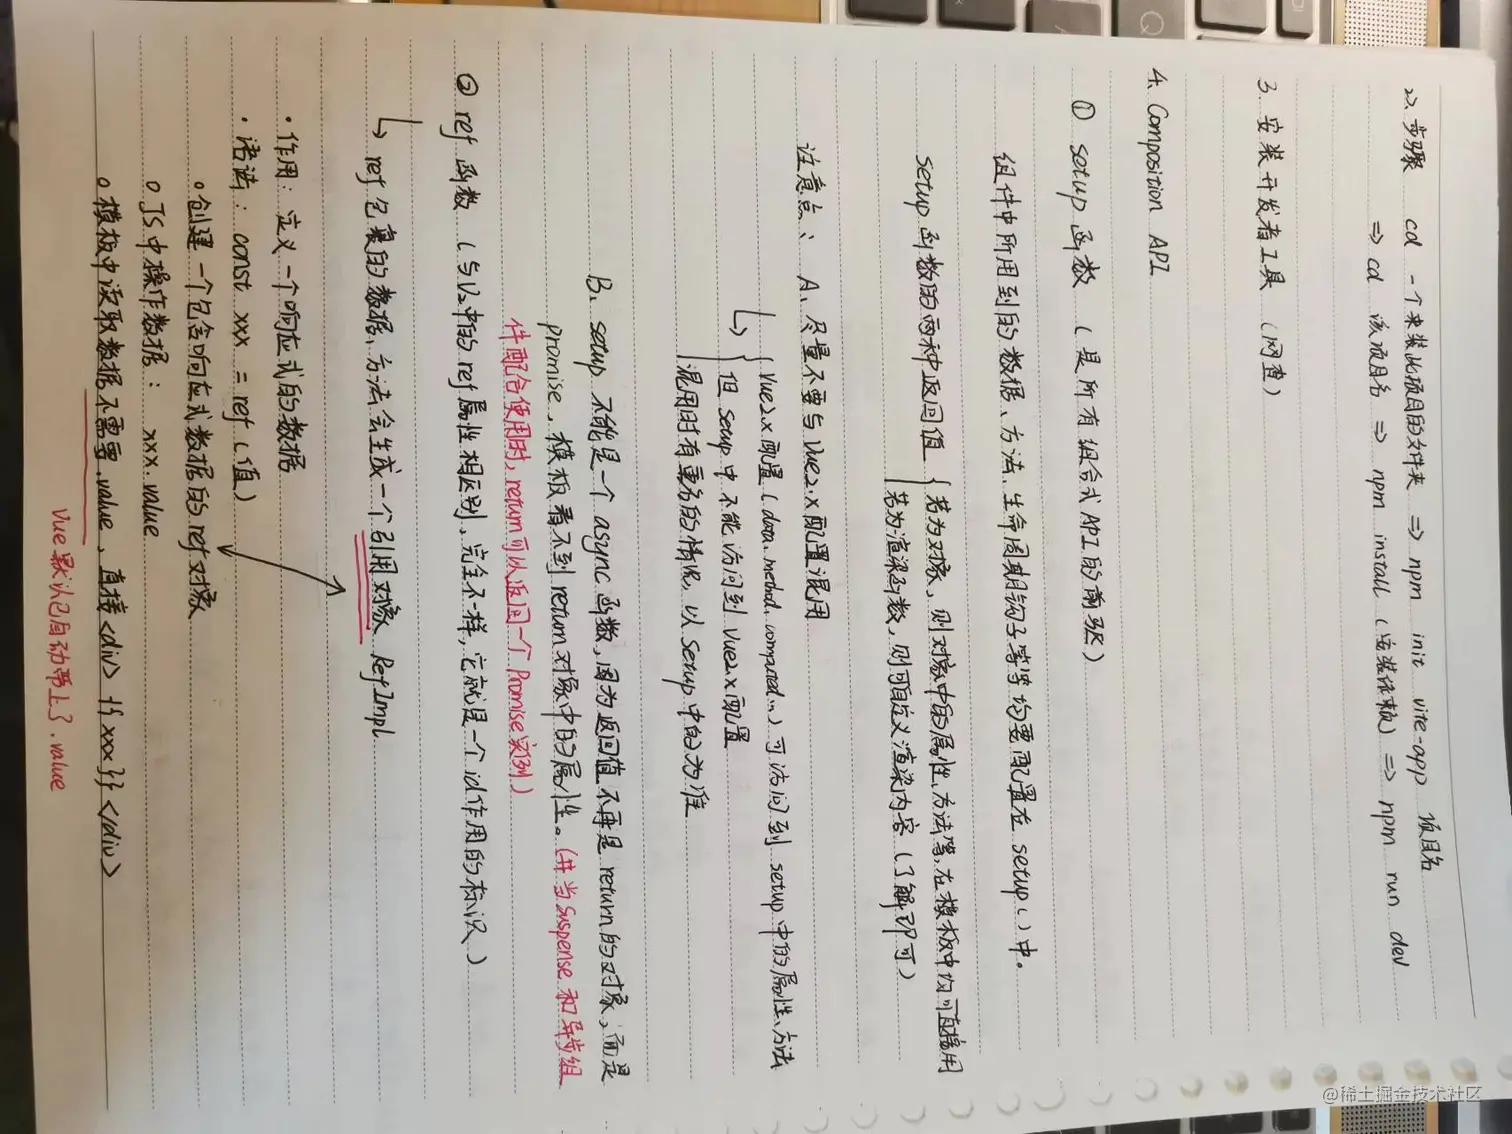 2>、步骤 cd 一个来装此项目的文件夹 => npm init vite-app 项目名
=> cd 该项目名 => npm install (安装依赖) => npm run dev
3. 安装开发者工具 (网查)
4. Composition API
① setup 函数 (是所有组合式API的前驱)
组件中所用到的数据、方法、生命周期钩子等等均要配置在 setup()中。
setup函数的两种返回值 { 若为对象，则对象中的属性、方法等，在模板中均可直接用
若为渲染函数，则可自定义渲染内容 (了解即可)
注意点、 A、尽量不要与Vue2.x配置混用
↳ { Vue2.x配置 (data、method、computed...) 可访问到 setup中的属性、方法
但 setup中不能访问到 Vue2.x配置
混用时有重名的情况，以setup中的为准
B、setup 不能是一个 async函数，因为返回值不再是 return的对象，而是
promise，模板看不到return对象中的属性。(并当Suspense和异步组
件配合使用时，return可以返回一个Promise实例)
② ref 函数 (与V2中的ref属性相区别，完全不一样，它就是一个id作用的标识)
↳ ref包裹的数据、方法会生成一个引用对象 RefImpl
· 作用: 定义一个响应式的数据
· 语法: const xxx = ref (值)
。创建一个包含响应式数据的ref对象
。JS中操作数据: xxx.value
。模板中读取数据不需要.value，直接<div> {{xxx}} </div>
Vue默认已自动带上了.value
@稀土掘金技术社区